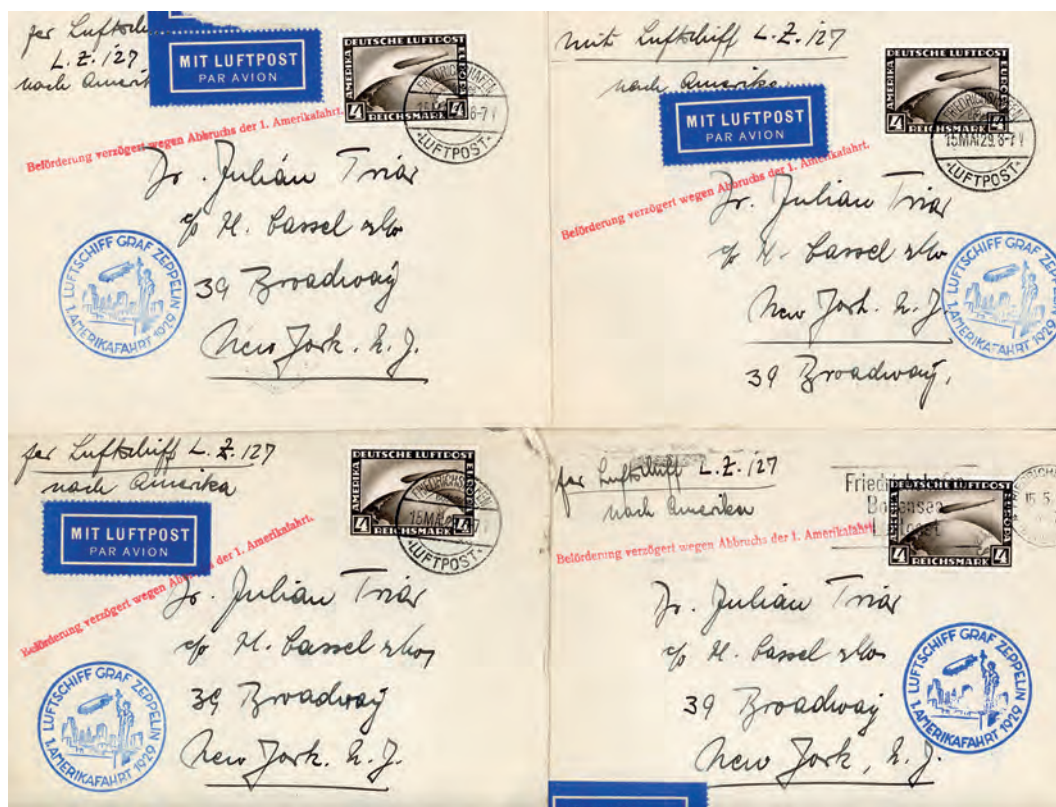 per Luftschiff
L.Z. 127
nach Amerika
MIT LUFTPOST
PAR AVION
DEUTSCHE LUFTPOST
AMERIKA
EUROPA
4 4
REICHSMARK
FRIEDRICHSHAFEN
15.MAI 6-7
LUFTPOST
Beförderung verzögert wegen Abbruchs der 1. Amerikafahrt.
Dr. Julián Triar
c/o H. Cassel
39 Broadway
New York. N. Y.
LUFTSCHIFF GRAF ZEPPELIN
1. AMERIKAFAHRT 1929
mit Luftschiff L.Z. 127
nach Amerika
MIT LUFTPOST
PAR AVION
DEUTSCHE LUFTPOST
AMERIKA
EUROPA
4 4
REICHSMARK
FRIEDRICHSHAFEN
15.MAI 29.6-7
LUFTPOST
Beförderung verzögert wegen Abbruchs der 1. Amerikafahrt.
Dr. Julián Triar
c/o H. Cassel
New York. N. Y.
39 Broadway,
LUFTSCHIFF GRAF ZEPPELIN
1. AMERIKAFAHRT 1929
per Luftschiff L.Z. 127
nach Amerika
MIT LUFTPOST
PAR AVION
DEUTSCHE LUFTPOST
AMERIKA
EUROPA
4 4
REICHSMARK
FRIEDRICHSHAFEN
15.MAI
LUFTPOST
Beförderung verzögert wegen Abbruchs der 1. Amerikafahrt.
Dr. Julián Triar
c/o H. Cassel
39 Broadway
New York. N. Y.
LUFTSCHIFF GRAF ZEPPELIN
1. AMERIKAFAHRT 1929
per Luftschiff L.Z. 127
nach Amerika
Friedrichshafen
Bodensee
DEUTSCHE LUFTPOST
AMERIKA
EUROPA
4 4
REICHSMARK
15.5
Beförderung verzögert wegen Abbruchs der 1. Amerikafahrt.
Dr. Julián Triar
c/o H. Cassel
39 Broadway
New York, N. Y.
LUFTSCHIFF GRAF ZEPPELIN
1. AMERIKAFAHRT 1929
MIT LUFTPOST